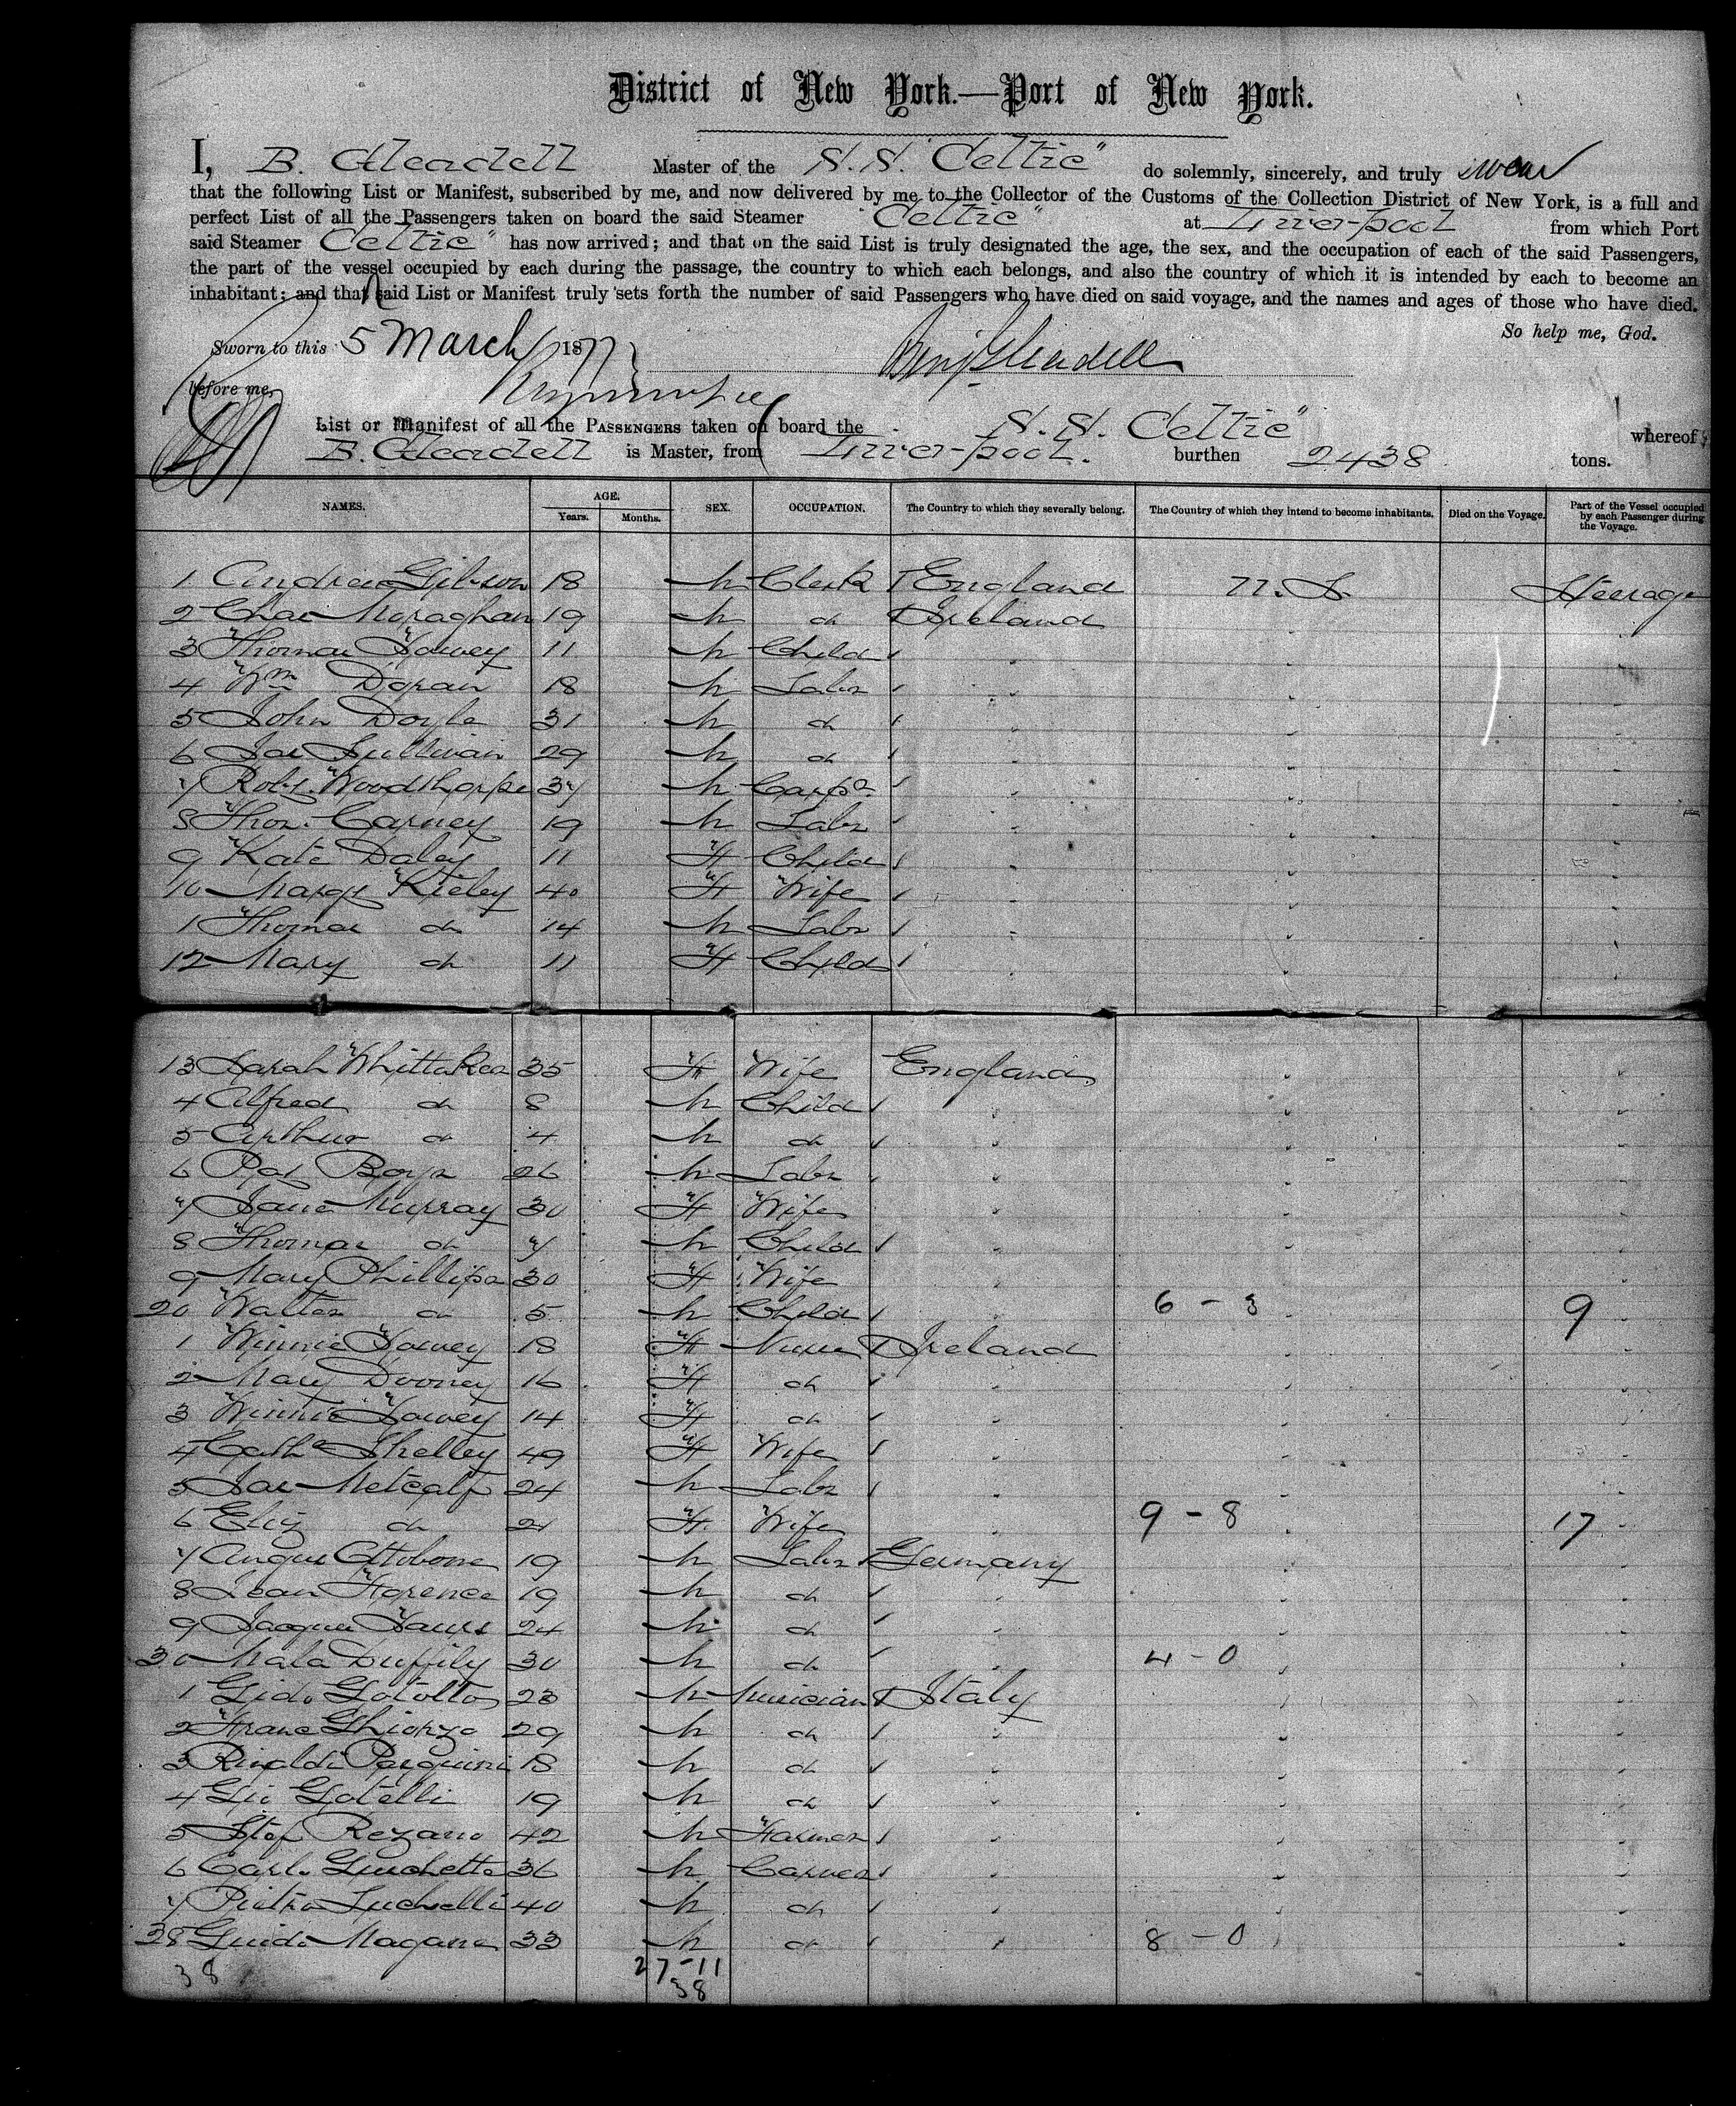 District of New York.—Port of New York.
I, B. Gleadell Master of the S.S. "Celtic" do solemnly, sincerely, and truly swear
that the following List or Manifest, subscribed by me, and now delivered by me to the Collector of the Customs of the Collection District of New York, is a full and
perfect List of all the Passengers taken on board the said Steamer "Celtic" at Liverpool from which Port
said Steamer Celtic" has now arrived; and that on the said List is truly designated the age, the sex, and the occupation of each of the said Passengers,
the part of the vessel occupied by each during the passage, the country to which each belongs, and also the country of which it is intended by each to become an
inhabitant; and that said List or Manifest truly sets forth the number of said Passengers who have died on said voyage, and the names and ages of those who have died.
So help me, God.
Sworn to this 5 March 1877
Benj Gleadell
before me,
List or Manifest of all the PASSENGERS taken on board the S.S. Celtic" whereof
B. Gleadell is Master, from Liverpool. burthen 2438 tons.
NAMES. AGE. Years. Months. SEX. OCCUPATION. The Country to which they severally belong. The Country of which they intend to become inhabitants. Died on the Voyage. Part of the Vessel occupied by each Passenger during the Voyage.
1 Andrew Gibson 18 M Clerk England U.S. Steerage
2 Chas Moraghan 19 M do Ireland "
3 Thomas Fowey 11 M Child " "
4 Wm Doran 18 M Labr " "
5 John Doyle 31 M do " "
6 Jas Sullivan 29 M do " "
7 Robt. Woodthorpe 37 M Carpr " "
8 Thos. Carney 19 M Labr " "
9 Kate Daley 11 F Child " "
10 Margt Kieley 40 F Wife " "
1 Thomas do 14 M Labr " "
12 Mary do 11 F Child " "
13 Sarah Whittaker 35 F Wife England " "
4 Alfred do 8 M Child " " "
5 Arthur do 4 M do " " "
6 Pat Boyn 26 M Labr " " "
7 Jane Murray 30 F Wife " " "
8 Thomas do 7 M Child " " "
9 Mary Phillips 30 F Wife " " "
20 Walter do 5 M Child " 6 - 3 " 9 "
1 Winnie Fowey 18 F Nurse Ireland " "
2 Mary Dooney 16 F do " " "
3 Winnie Fowey 14 F do " " "
4 Cath Shelley 49 F Wife " " "
5 Jas Metcalf 24 M Labr " " "
6 Eliz do 21 F Wife " 9 - 8 " 17 "
7 19 M Labr Germany " "
8 Jean Florence 19 M do " " "
9 Jacques Faure 24 M do " " "
30 Mala Duffily 30 M do " 4 - 0 " "
1 Gido 23 M Musician Italy " "
2 Franc Ghiorzo 29 M do " " "
3 Rinaldi Pasquini 18 M do " " "
4 Gio Gotelli 19 M do " " "
5 Stef Rezano 42 M Farmer " " "
6 Carl. 36 M Carver " " "
7 Pietro Luchelli 40 M do " " "
38 Guido Magana 33 M do " 8 - 0 " "
38 27-11
38